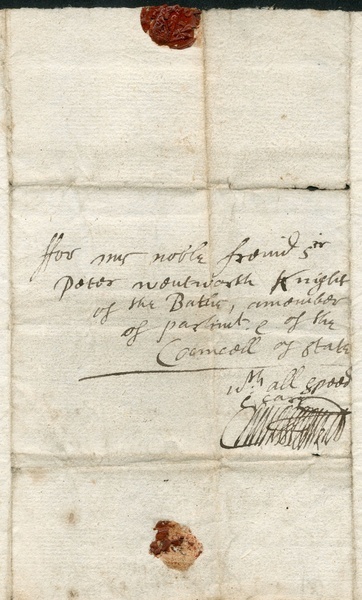 ffor my noble freind Sr
Peter wentworth Knight
of the Bathe, a member
of parlmt. & of the
Councell of State
wth all speed
& care